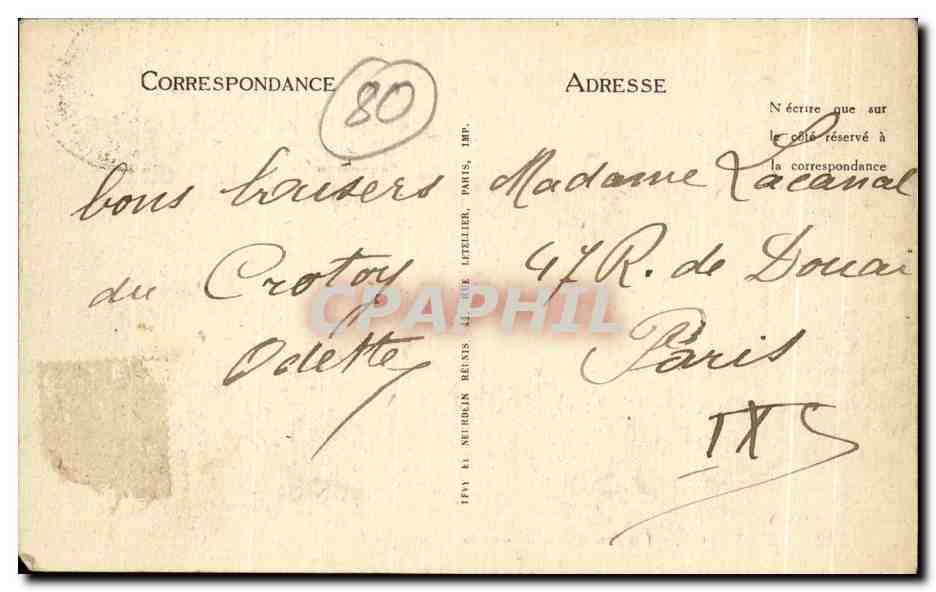 CORRESPONDANCE
80
bons baisers
du Crotoy
Odette
LÉVY ET NEURDEIN RÉUNIS, 44, RUE LETELLIER, PARIS, IMP.
ADRESSE
N'écrire que sur
le côté réservé à
la correspondance
Madame Lacanal
47 R. de Douai
Paris
IX
CPAPHIL